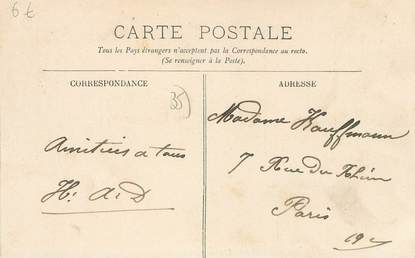 6 €
CARTE POSTALE
Tous les Pays étrangers n'acceptent pas la Correspondance au recto.
(Se renseigner à la Poste).
CORRESPONDANCE
ADRESSE
35
Amitiés a tous
H. A. D
Madame Kauffmann
7 Rue du Rhin
Paris
19e